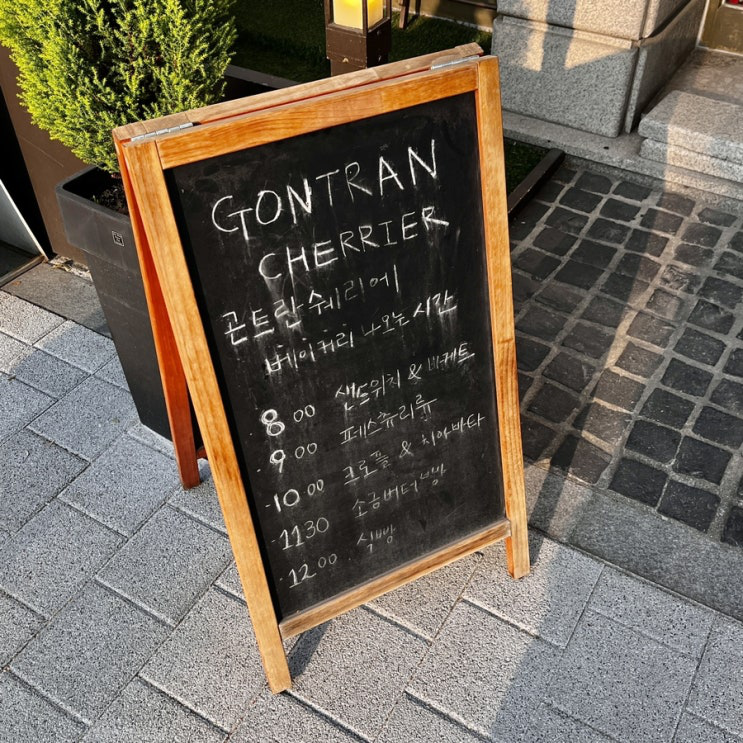 GONTRAN
CHERRIER
곤트란 쉐리에
베이커리 나오는 시간
8 00 샌드위치 & 바케트
9 00 페스츄리류
10 00 크로플 & 치아바타
1130 소금버터 빵
12 00 식빵